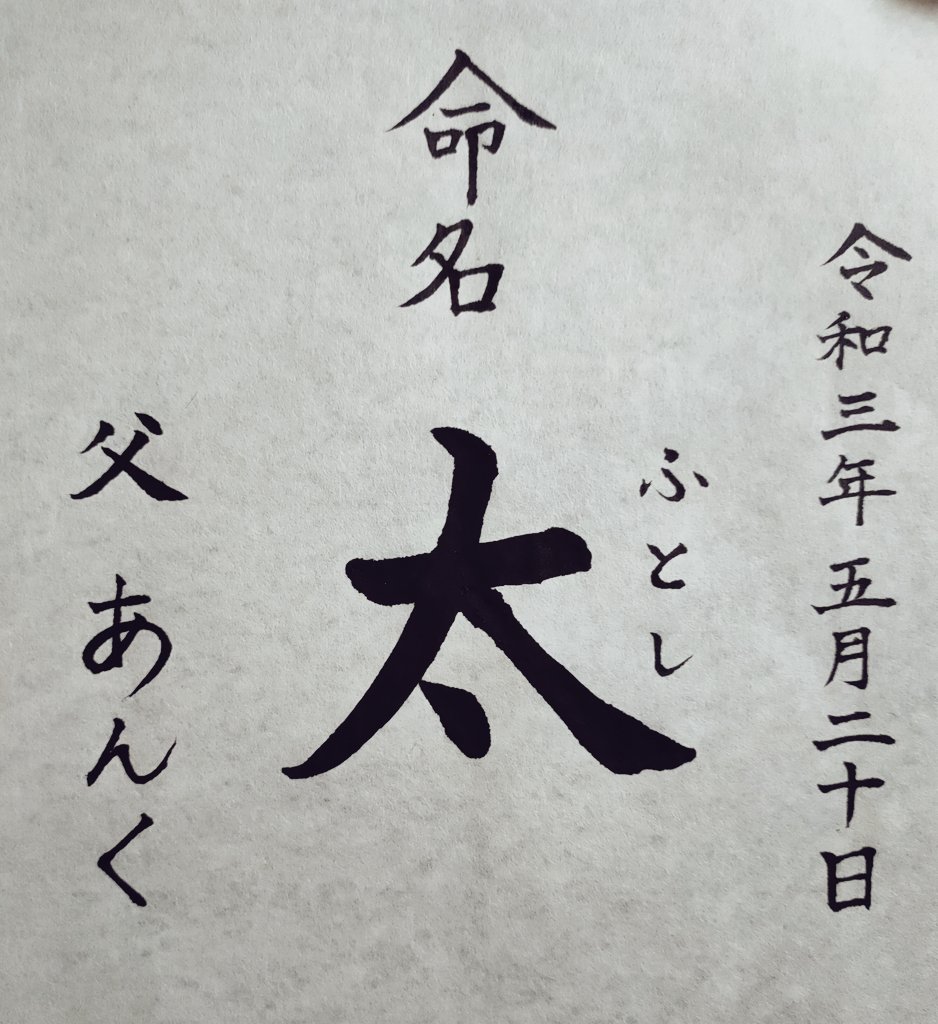 令和三年五月二十日
命名
太
ふとし
父 あんく